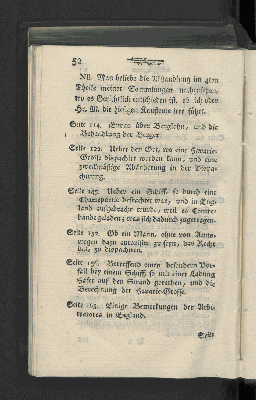 52
NB. Man beliebe die Abhandlung im 4ten
Theile meiner Sammlungen nachzusehen,
wo es Gerichtlich entschieden ist, ob ich oder
Hr. M. die hiesigen Kaufleute irre führt.
Seite 114. Etwas über Bergelohn, und die
Behandlung der Berger.
Seite 122. Ueber den Ort, wo eine Havarie-
Grosse dispachirt werden kann, und eine
zweckmäßige Abänderung in der Dispa-
chirung.
Seite 145. Ueber ein Schiff, so durch eine
Chartepartie befrachtet war, und in Eng-
land aufgebracht wurde, weil es Contre-
bande geladen; was sich dadurch zugetragen.
Seite 152. Ob ein Mann, ohne von Amts-
wegen dazu autorisirt zu seyn, das Recht
hat, zu dispachiren.
Seite 156. Betreffend einen besondern Vor-
fall bey einem Schiff, so mit einer Ladung
Hafer auf den Strand gerathen, und die
Berechnung der Havarie-Grosse.
Seite 163. Einige Bemerkungen der Arbi-
tratores in England.
Seite